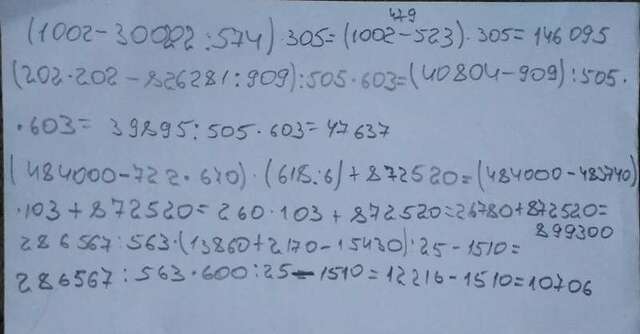 479
(1002-300202:574)·305=(1002-523)·305=146095
(202·202-826281:909):505·603=(40804-909):505·
·603=39895:505·603=47637
(484000-722·670)·(618:6)+872520=(484000-483740)
·103+872520=260·103+872520=26780+872520=
899300
286567:563·(13860+2170-15430):25-1510=
286567:563·600:25-1510=12216-1510=10706